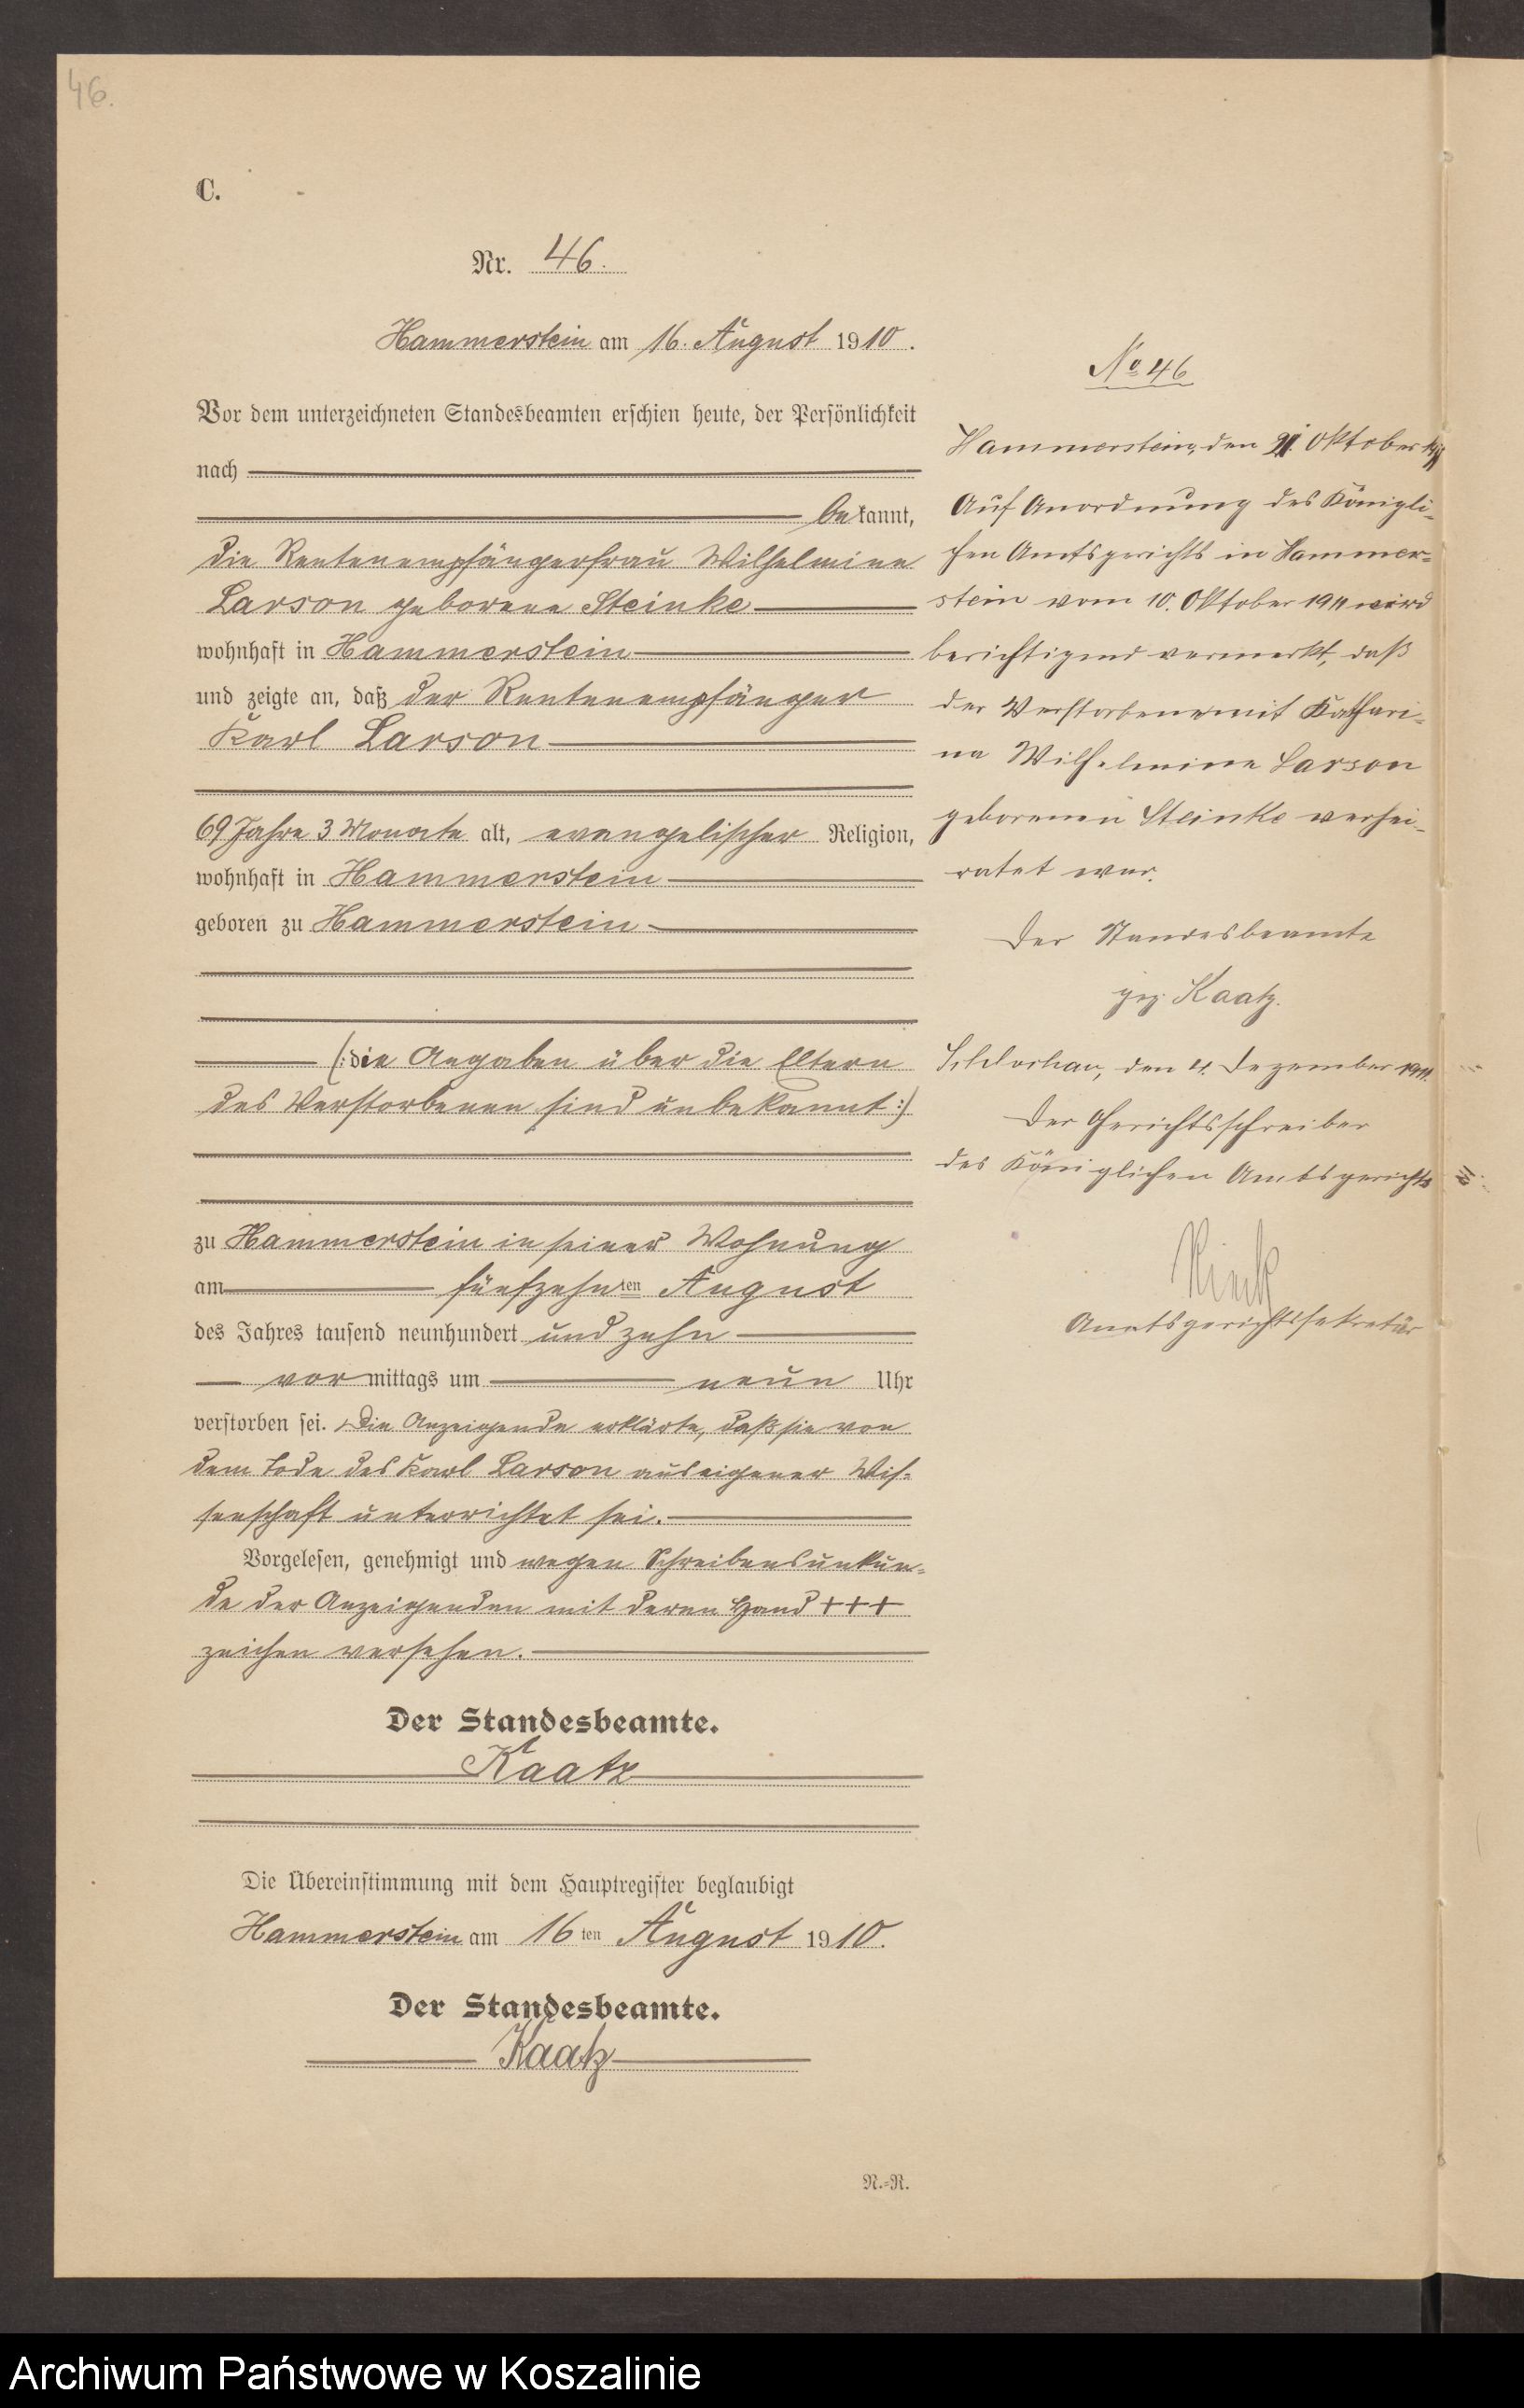 46.
C.
Nr. 46.
Hammerstein am 16. August 1910.
Vor dem unterzeichneten Standesbeamten erschien heute, der Persönlichkeit
nach
bekannt,
die Rentenempfängerfrau Wilhelmine
Larson geborene Steinke
wohnhaft in Hammerstein
und zeigte an, daß der Rentenempfänger
Karl Larson
69 Jahre 3 Monate alt, evangelischer Religion,
wohnhaft in Hammerstein
geboren zu Hammerstein
(: die Angaben über die Eltern
des Verstorbenen sind unbekannt :)
zu Hammerstein in seiner Wohnung
am fünfzehnten August
des Jahres tausend neunhundert und zehn
vormittags um neun Uhr
verstorben sei. Die Anzeigende erklärte, daß sie von
dem Tode des Karl Larson aus eigener Wis-
senschaft unterrichtet sei.
Vorgelesen, genehmigt und wegen Schreibensunkun-
de der Anzeigenden mit deren Hand +++
zeichen versehen.
Der Standesbeamte.
Kaatz
Die Übereinstimmung mit dem Hauptregister beglaubigt
Hammerstein am 16ten August 1910.
Der Standesbeamte.
Kaatz
N.-R.
No 46
Hammerstein, den Oktober
Auf Anordnung des Königli-
chen Amtsgerichts in Hammer-
stein vom 10. Oktober 1911 wird
berichtigend vermerkt, daß
der Verstorbene mit Kathari-
na Wilhelmine Larson
geborenen Steinke verhei-
ratet war.
Der Standesbeamte
gez. Kaatz.
Schlochau, den 4. Dezember 1911.
Der Gerichtsschreiber
des Königlichen Amtsgerichts
Amtsgerichtssekretär
Archiwum Państwowe w Koszalinie